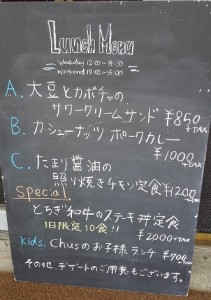 Lunch Menu
Weekday 12:00～14:30
Weekend 12:00～15:00
A. 大豆とカボチャの
サワークリームサンド ¥850
+TAX
B. カシューナッツ ポークカレー
¥1000
+TAX
C. たまり醤油の
照り焼きチキン定食 ¥1200
+TAX
Special とちぎ和牛のステーキ丼定食
1日限定10食!! ¥2000+TAX
Kids. Chusのお子様ランチ ¥900
+TAX
その他、デザートのご用意もございます。